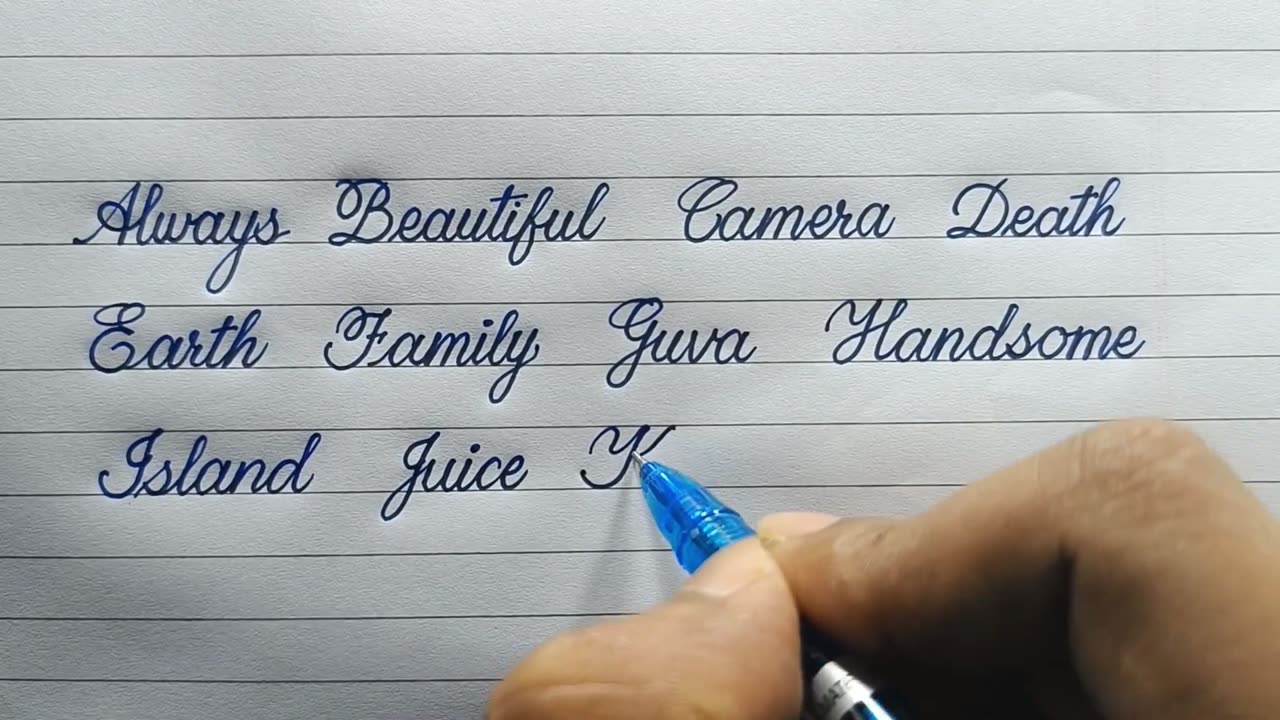 Always Beautiful Camera Death
Earth Family Guva Handsome
Island Juice K